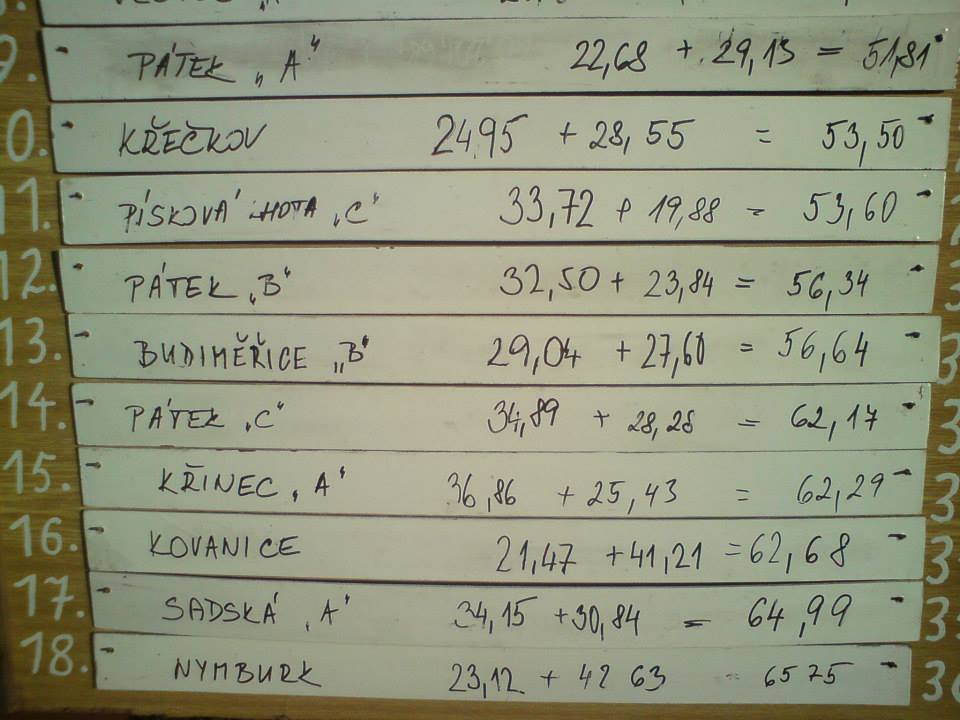 9. PÁTEK „A“ 22,68 + 29,13 = 51,81
0. KŘEČKOV 24,95 + 28,55 = 53,50
11. PÍSKOVÁ LHOTA „C“ 33,72 + 19,88 = 53,60
12. PÁTEK „B“ 32,50 + 23,84 = 56,34
13. BUDIMĚŘICE „B“ 29,04 + 27,60 = 56,64
14. PÁTEK „C“ 34,89 + 28,28 = 62,17
15. KŘINEC „A“ 36,86 + 25,43 = 62,29
16. KOVANICE 21,47 + 41,21 = 62,68
17. SADSKÁ „A“ 34,15 + 30,84 = 64,99
18. NYMBURK 23,12 + 42 63 = 65 75